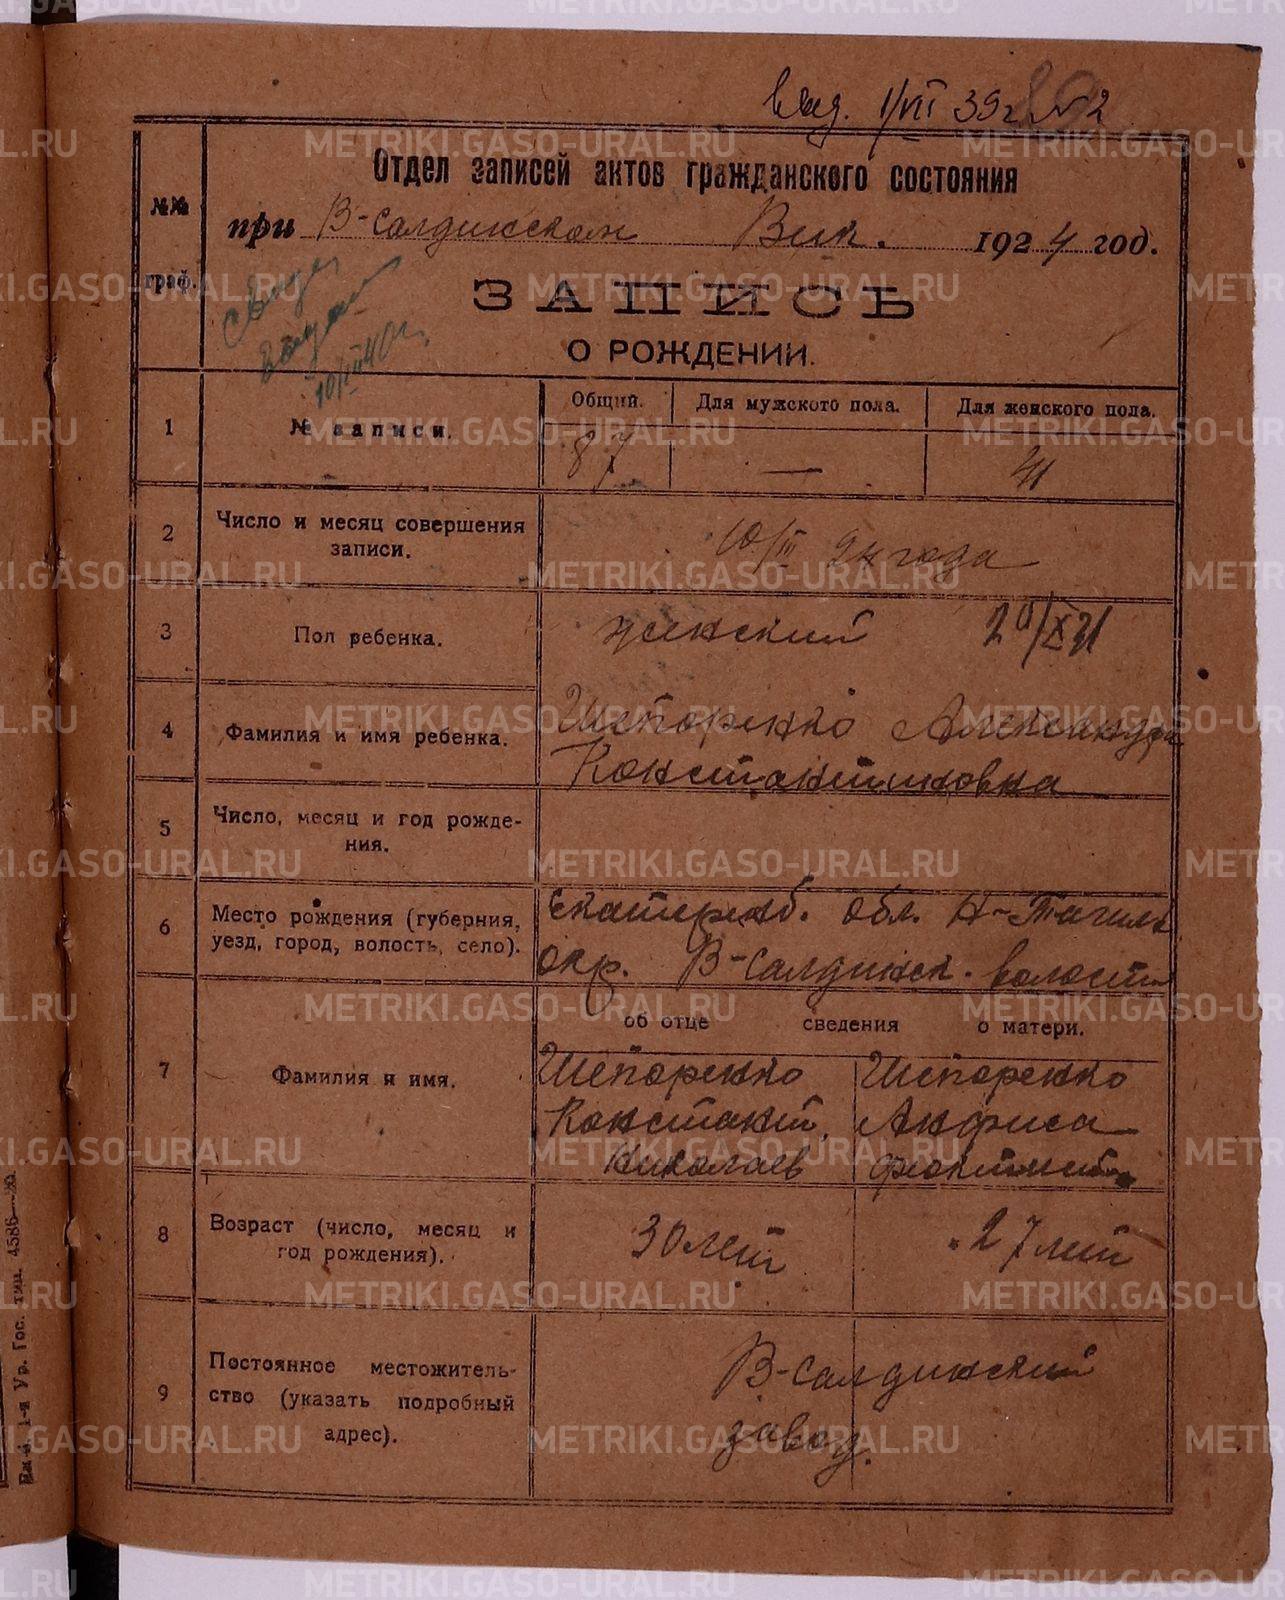 выд. 1/VII 39г №2
Отдел записей актов гражданского состояния
№№ граф.
при В-Салдинском Вик. 1924 год.
ЗАПИСЬ
О РОЖДЕНИИ.
выдан
10/III 40 г.
1 № записи. Общий. Для мужского пола. Для женского пола.
87 — 41
2 Число и месяц совершения
записи.
10/III 24 года
3 Пол ребенка. женский
4 Фамилия и имя ребенка. Шепоренко Александра
Константиновна
5 Число, месяц и год рожде-
ния.
6 Место рождения (губерния,
уезд, город, волость, село).
Екатеринб. обл. Н-Тагильс
окр. В-Салдинск. волости
об отце сведения о матери.
7 Фамилия и имя.
Шепоренко Шепоренко
Констант. Анфиса
Николаев
8 Возраст (число, месяц и
год рождения).
30 лет 27 лет
9 Постоянное местожитель-
ство (указать подробный
адрес).
В-Салдинский
завод.
1-я Ур. Гос. тип. 4586—20
METRIKI.GASO-URAL.RU